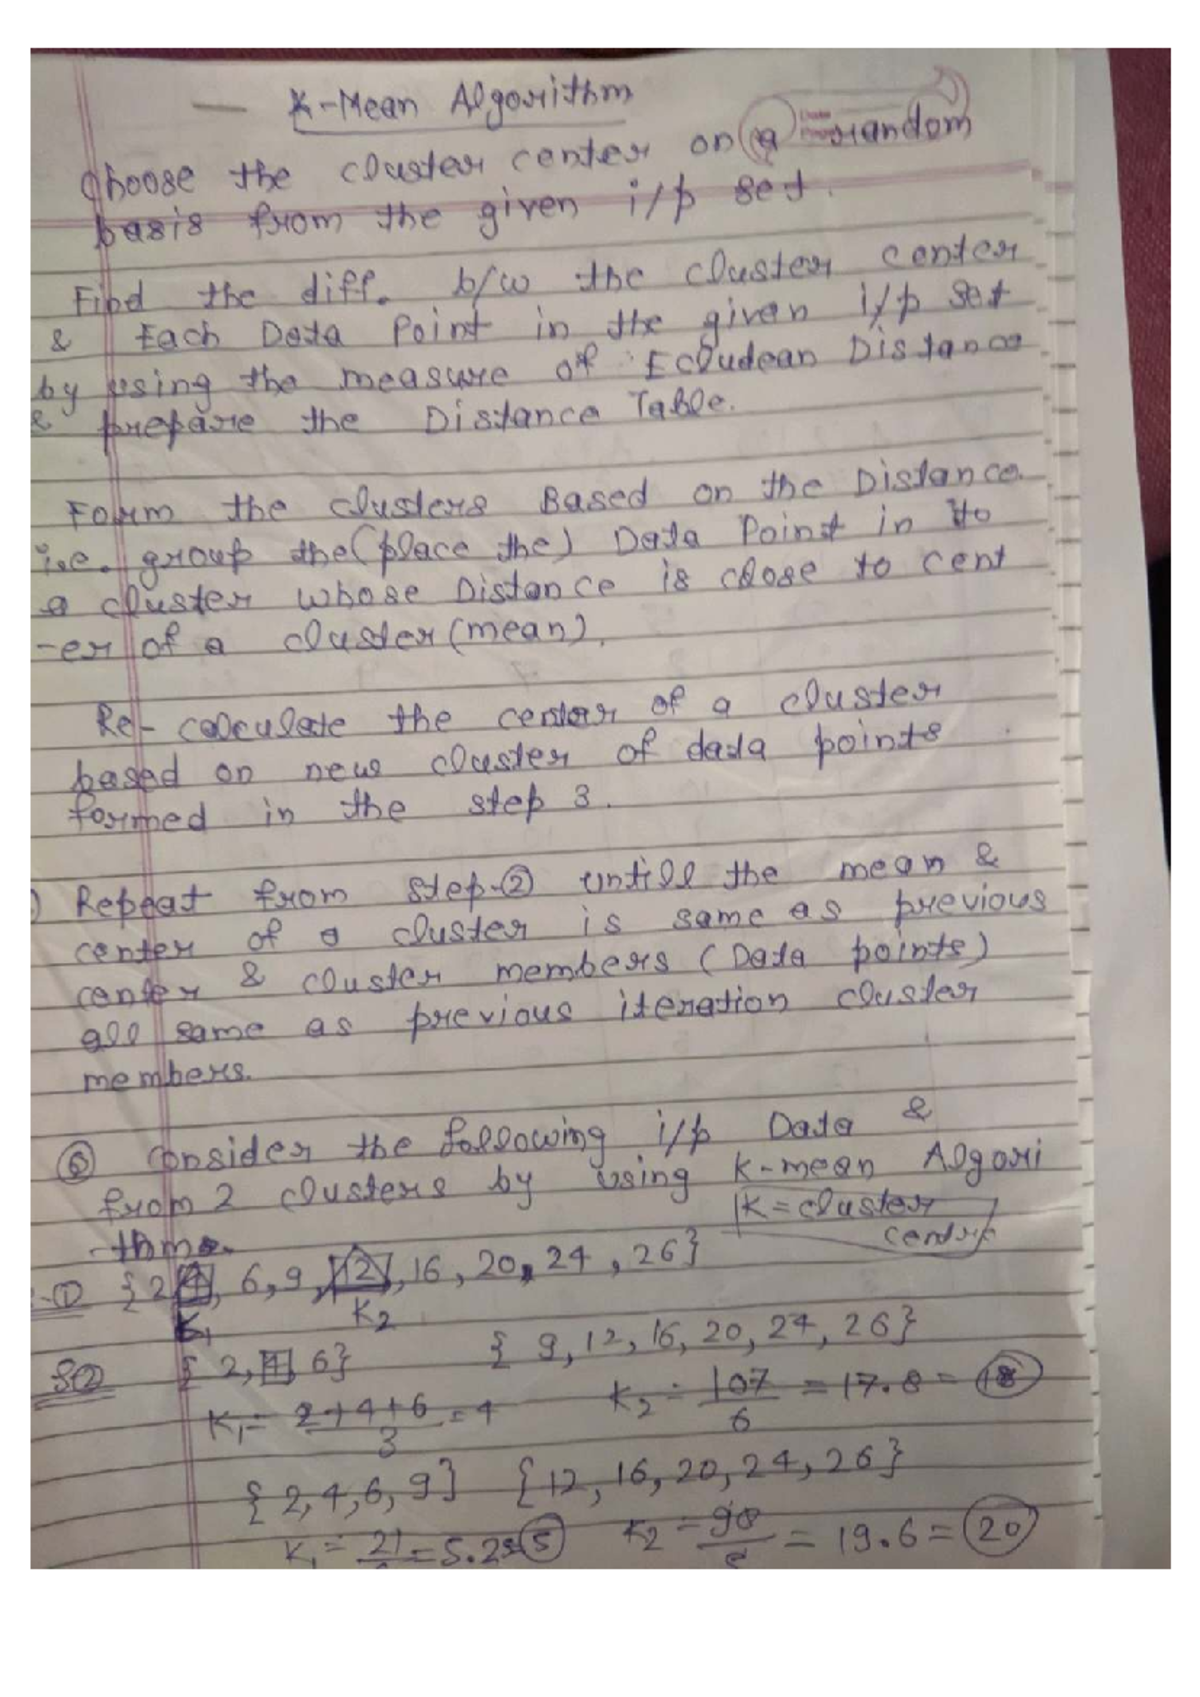 K-Mean Algorithm
Choose the cluster center on a random
basis from the given i/p set.
Find the diff. b/w the cluster center
& Each Data Point in the given i/p set
by using the measure of Ecludean Distance
& prepare the Distance Table.
Form the clusters Based on the Distance.
i.e. group the (place the) Data Point in to
a cluster whose Distance is close to cent
-er of a cluster (mean).
Re-calculate the center of a cluster
based on new cluster of data points
formed in the step 3.
Repeat from step-② untill the mean &
center of a cluster is same as previous
center & cluster members (Data points)
all same as previous iteration cluster
members.
⑥ Consider the following i/p Data &
from 2 clusters by using K-mean Algori
-thm.
K = cluster
{2, 4, 6, 9, 12, 16, 20, 24, 26}
K1 K2
{2, 4, 6} {9, 12, 16, 20, 24, 26}
K1 = 2+4+6/3 = 4 K2 = 107/6 = 17.8 = 18
{2, 4, 6, 9} {12, 16, 20, 24, 26}
K1 = 21 = 5.25 = 5 K2 = 98 = 19.6 = 20